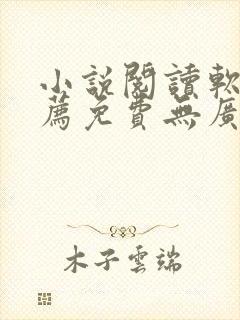 小說閱讀軟
薦免費無廣
木子雲端